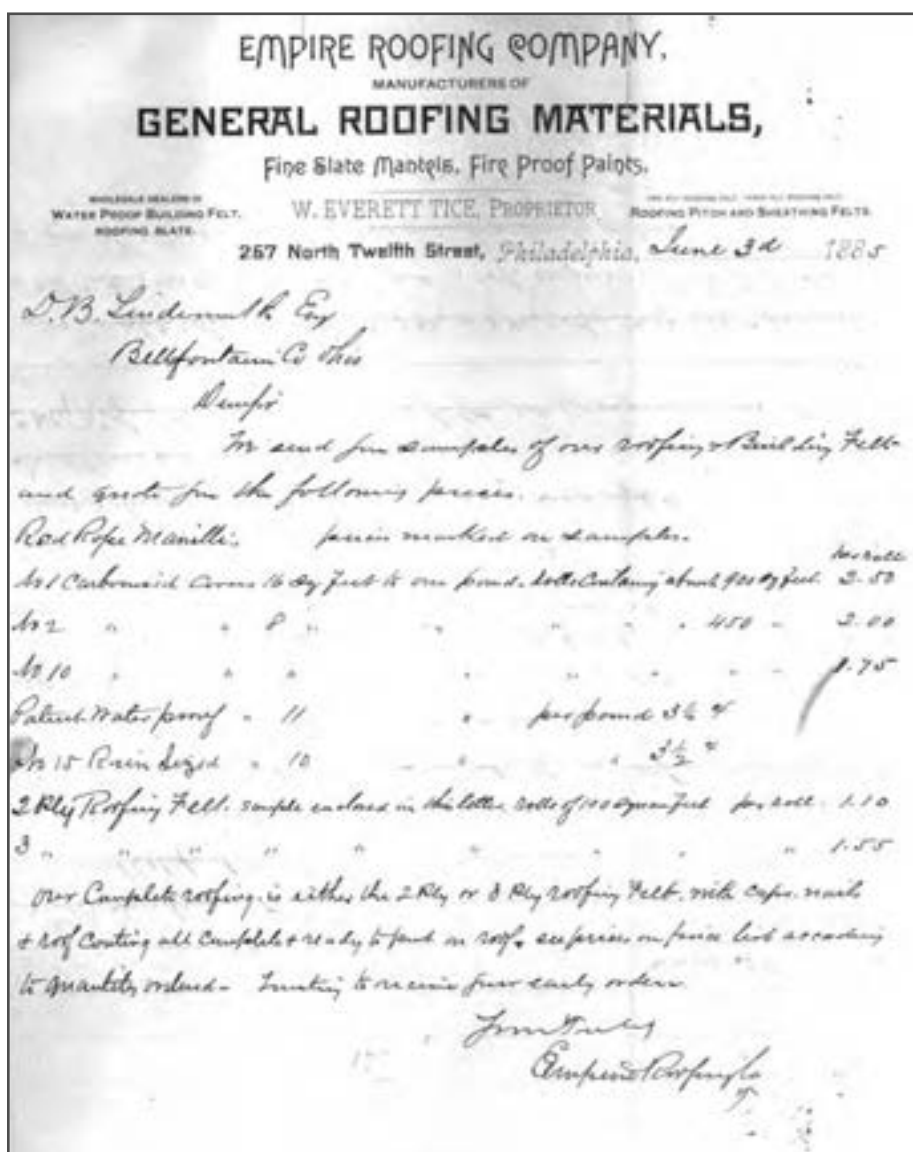 EMPIRE ROOFING COMPANY,
MANUFACTURERS OF
GENERAL ROOFING MATERIALS,
Fine Slate Mantels, Fire Proof Paints,
WHOLESALE DEALERS IN
WATER PROOF BUILDING FELT,
ROOFING SLATE.
W. EVERETT TICE, PROPRIETOR
ROOFING PITCH AND SHEATHING FELTS.
257 North Twelfth Street, Philadelphia, June 3d 1885
D. B. Lindemuth Esq
Bellfontain Co Ohio
Dear Sir
We send you samples of our roofing & Building Felt
and quote you the following prices.
Red Rope Manilla. prices marked on samples.
per roll
No 1 Carbonized covers 16 sq feet to one pound. Rolls Containing about 900 sq feet 2.50
No 2 " " 8 " " " " " 450 " 2.00
No 10 " " " " " " " " 1.75
Patent Water proof " 11 " per pound 3½ ¢
No 15 Rosin Sized " 10 " " 3½ ¢
2 Ply Roofing Felt. sample enclosed in this letter rolls of 100 square feet per roll. 1.10
3 " " " " " " " " " 1.55
Our Complete roofing is either the 2 Ply or 3 Ply roofing Felt. with caps. nails
& roof Coating all Complete & ready to put on roof. see prices on price list according
to quantity ordered - Trusting to receive your early orders
Yours Truly
Empire Roofing Co